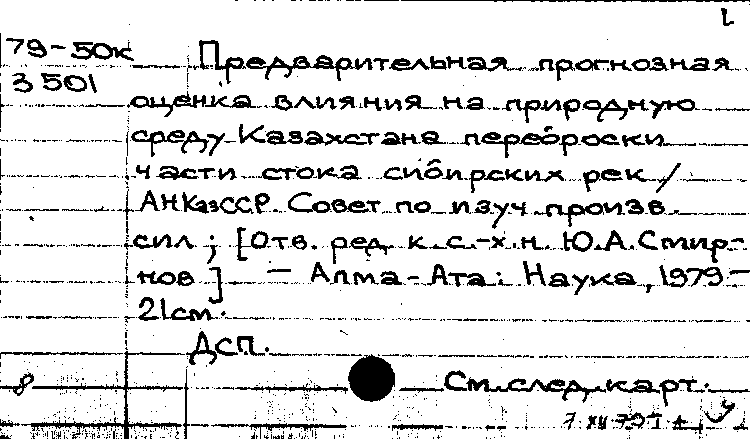 79-50к
3501
Предварительная прогнозная
оценка влияния на природную
среду Казахстана переброски
части стока сибирских рек /
АНКазССР. Совет по изуч. произв.
сил ; [Отв. ред. к. с.-х. н. Ю.А.Смир-
нов ] — Алма-Ата : Наука, 1979 —
21см.
ДСП.
8
См. след. карт.
7 XII 79